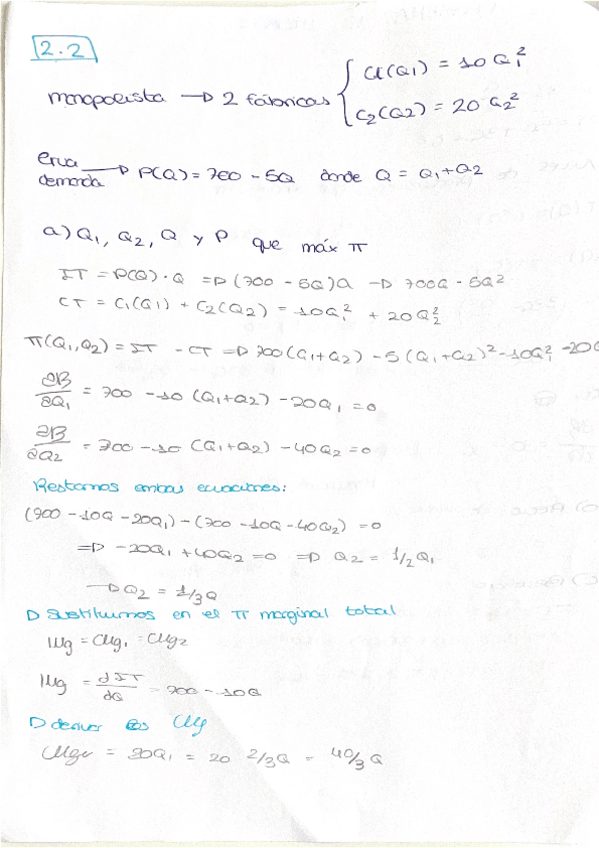 2.2
monopolista → 2 fábricas { C1(Q1) = 10Q1²
C2(Q2) = 20Q2²
curva demanda → P(Q) = 700 - 5Q donde Q = Q1+Q2
a) Q1, Q2, Q y P que máx π
IT = P(Q)·Q ⇒ (700 - 5Q)Q → 700Q - 5Q²
CT = C1(Q1) + C2(Q2) = 10Q1² + 20Q2²
π(Q1,Q2) = IT - CT ⇒ 700(Q1+Q2) - 5(Q1+Q2)² - 10Q1² - 20Q
∂B/∂Q1 = 700 - 10(Q1+Q2) - 20Q1 = 0
∂B/∂Q2 = 700 - 10(Q1+Q2) - 40Q2 = 0
Restamos ambas ecuaciones:
(700 - 10Q - 20Q1) - (700 - 10Q - 40Q2) = 0
⇒ -20Q1 + 40Q2 = 0 ⇒ Q2 = 1/2 Q1
→ Q2 = 1/3 Q
▷ Sustituimos en el π marginal total
IMg = CMg1 = CMg2
IMg = dIT/dQ = 700 - 10Q
▷ derivar los CMg
CMg1 = 20Q1 = 20 2/3Q = 40/3 Q